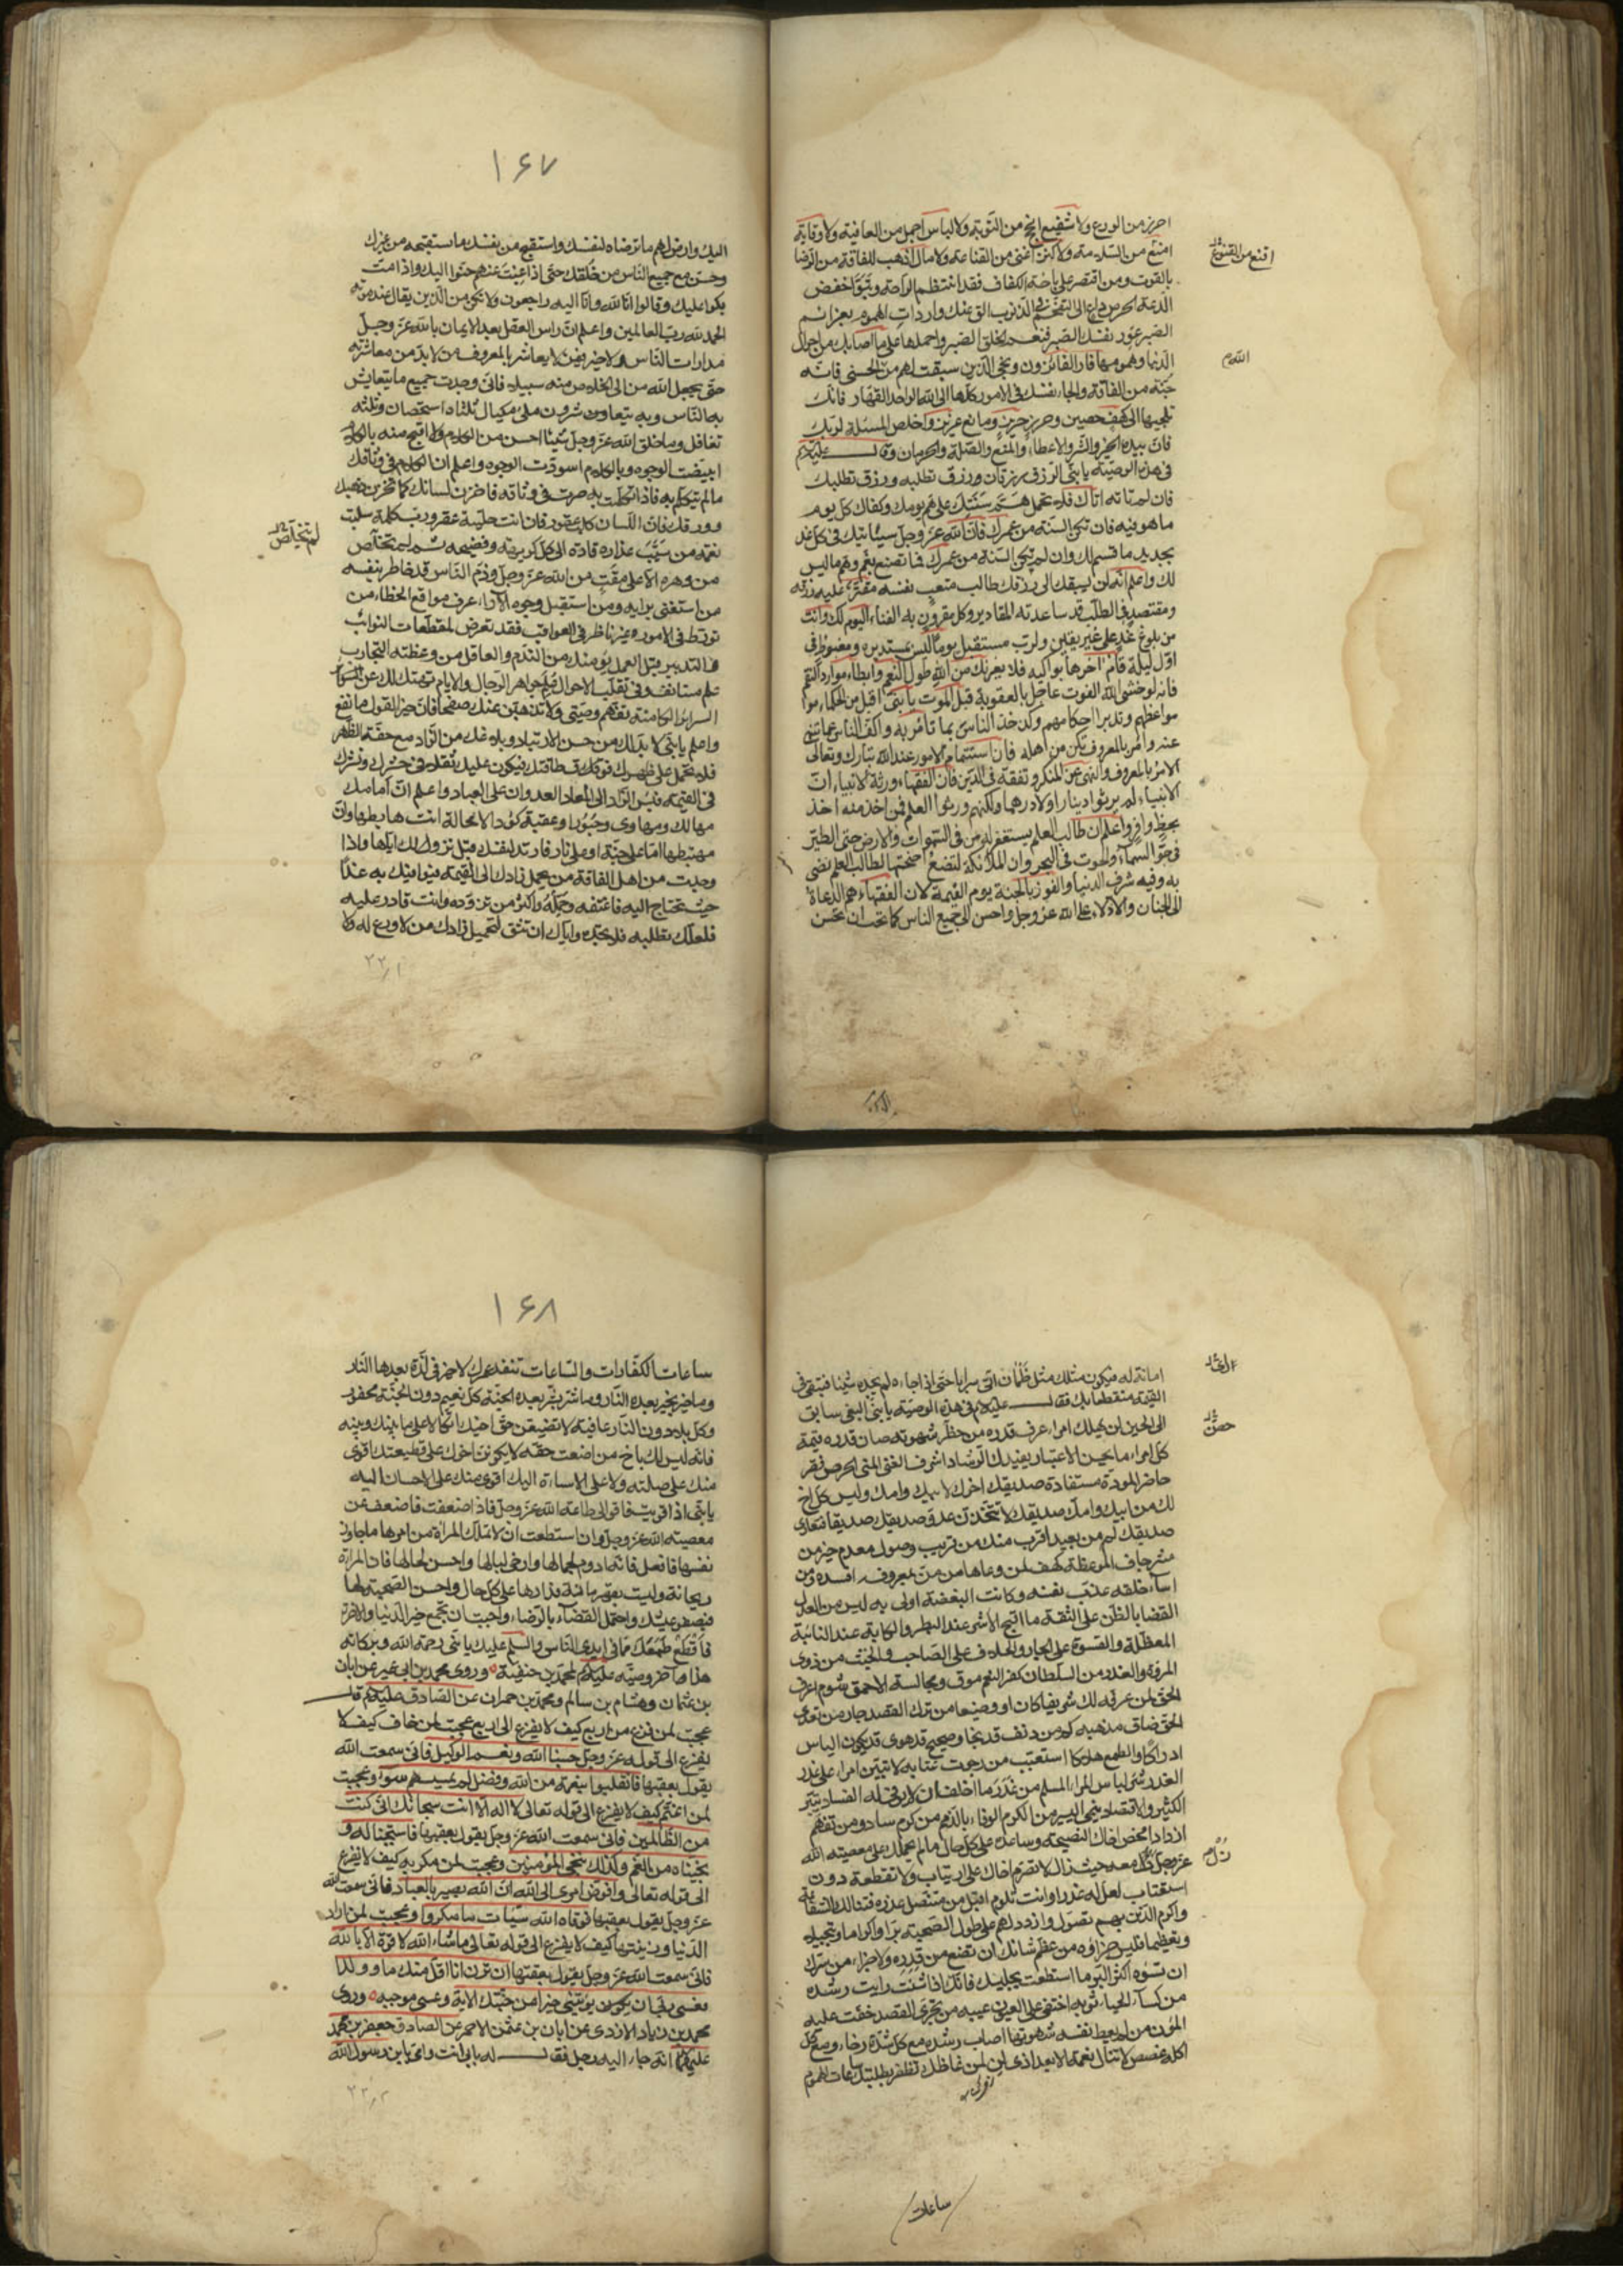 احرز من الورع ولا شفيع انجح من التوبة ولا لباس اجمل من العافية ولا وقاية
امنع من السلامة ولا كنز اغنى من القناعة ولا مال اذهب للفاقة من الرضا
اقنع من القنوع
بالقوت ومن اقتصر على بلغة الكفاف فقد انتظم الراحة وتبوّأ خفض
الدعة الحرص داع الى التقحّم في الذنوب الق عنك واردات الهموم بعزائم
الصبر عوّد نفسك الصبر فنعم الخلق الصبر واحملها على ما اصابك من اهوال
الدنيا وهمومها فاز الفائزون ونجى الذين سبقت لهم من الله الحسنى فانه
جنّة من الفاقة والجاء نفسك في الامور كلها الى الله الواحد القهار فانك
تلجيها الى كهف حصين وحرز حريز ومانع عزيز واخلص المسئلة لربك
فان بيده الخير والشر والاعطاء والمنع والصلة والحرمان وقال عليه السلام
في هذه الوصية يا بنى الرزق رزقان رزق تطلبه ورزق تطلبك
فان لم تاته اتاك فلا تحمل همّ سنتك على همّ يومك وكفاك كل يوم
ما هو فيه فان تكن السنة من عمرك فان الله عز وجل سيأتيك في كل غد
بجديد ما قسم لك وان لم تكن السنة من عمرك فما تصنع بغم وهم ما ليس
لك واعلم انه لن يسبقك الى رزقك طالب متعب نفسه مقتر عليه رزقه
ومقتصد في الطلب قد ساعدته المقادير وكل مقرون به الفناء اليوم لك وانت
من بلوغ غد على غير يقين ولرب مستقبل يوما ليس بمستدبره ومغبوط في
اول ليلة قام في آخرها بواكيه فلا يغرنك من الله طول النعم وابطاء موارد النقم
فانه لو خشي الله الفوت عاجل بالعقوبة قبل الموت يا بنى اقبل من الحكماء
مواعظهم وتدبر احكامهم وكن آخذ الناس بما تأمر به واكف الناس عما تنهى
عنه وامر بالمعروف تكن من اهله فان استتمام الامور عند الله تبارك وتعالى
الامر بالمعروف والنهي عن المنكر وتفقه في الدين فان الفقهاء ورثة الانبياء ان
الانبياء لم يورثوا دينارا ولا درهما ولكنهم ورثوا العلم فمن اخذ منه اخذ
بحظ وافر واعلم ان طالب العلم يستغفر له من في السموات والارض حتى الطير
في جو السماء والحوت في البحر وان الملائكة لتضع اجنحتها لطالب العلم رضى
به وفيه شرف الدنيا والفوز بالجنة يوم القيمة لان الفقهاء هم الدعاة
الى الجنان والادلاء على الله عز وجل واحسن الى جميع الناس كما تحب ان يحسن
١٦٧
اليك وارض لهم ما ترضاه لنفسك واستقبح من نفسك ما تستقبحه من غيرك
وحسّن مع جميع الناس من خلقك حتى اذا غبت عنهم حنّوا اليك واذا متّ
بكوا عليك وقالوا انا لله وانا اليه راجعون ولا تكن من الذين يقال عند موته
الحمد لله رب العالمين واعلم ان راس العقل بعد الايمان بالله عز وجل
مدارات الناس ولا خير فيمن لا يعاشر بالمعروف من لا بد من معاشرته
حتى يجعل الله من الى الخلاص منه سبيلا فانى وجدت جميع ما يتعايش
به الناس وبه يتعاشرون ملئ مكيال ثلثاه استحسان وثلثه
تغافل وما خلق الله عز وجل شيئا احسن من الكلام ولا اقبح منه بالكلام
ابيضت الوجوه وبالكلام اسودّت الوجوه واعلم ان الكلام في وثاقك
ما لم تتكلم به فاذا تكلمت به صرت في وثاقه فاخزن لسانك كما تخزن ذهبك
وورقك فان اللسان كلب عقور فان انت خليته عقر ورب كلمة سلبت
نعمة من سيّب عذاره قاده الى كل كريهة وفضيحة ثم لم يتخلص
لم يتخلص
من دهره الا على مقت من الله عز وجل وذم الناس قد خاطر بنفسه
من استغنى برايه ومن استقبل وجوه الآراء عرف مواقع الخطاء من
تورّط في الامور غير ناظر في العواقب فقد تعرّض لمقطعات النوائب
والتدبير قبل العمل يؤمنك من الندم والعاقل من وعظته التجارب
علم مستانف وفي تقلب الاحوال علم جواهر الرجال والايام تهتك لك عن السرائر
السرائر الكامنة تفهّم وصيتى ولا تذهبن عنك صفحا فان خير القول ما نفع
واعلم يا بنى لا بد لك من حسن الارتياد وبلاغك من الزاد مع خفة الظهر
فلا تحمل على ظهرك فوق طاقتك فيكون عليك ثقلا في حشرك ونشرك
في القيمة فبئس الزاد الى المعاد العدوان على العباد واعلم ان امامك
مهالك ومهاوى وجسورا وعقبة كؤدا لا محالة انت هابطها وان
مهبطها اما على جنة او على نار فارتد لنفسك قبل نزولك اياها واذا
وجدت من اهل الفاقة من يحمل زادك الى القيمة فيوافيك به غدا
حيث تحتاج اليه فاغتنمه وحمّله واكثر من تزوّده وانت قادر عليه
فلعلك تطلبه فلا تجده واياك ان تثق لتحميل زادك من لا ورع له ولا
امانة له فيكون مثلك مثل ظمآن رأى سرابا حتى اذا جاءه لم يجده شيئا فتبقى في
القيمة منقطعا بك فقال عليه السلام في هذه الوصية يا بنى البغى سابق
الى الحين لن يهلك امرء عرف قدره من حظر شهوته صان قدره قيمة
حصن
كل امرء ما يحسن الاعتبار يفيدك الرشاد اشرف الغنى ترك المنى الحرص فقر
حاضر المودة قرابة مستفادة صديقك اخوك لابيك وامك وليس كل اخ
لك من ابيك وامك صديقك لا تتخذن عدو صديقك صديقا فتعادى
صديقك كم من بعيد اقرب منك من قريب وصول معدم خير من
مثر جاف الموعظة كهف لمن وعاها من من بمعروفه افسده من
اساء خلقه عذب نفسه وكانت البغضة اولى به ليس من العدل
القضاء بالظن على الثقة ما اقبح الاشر عند البطر والكابة عند النائبة
المعضلة والقسوة على الجار والخلاف على الصاحب والحنث من ذوى
المروة والغدر من السلطان كفر النعم موق ومجالسة الاحمق شوم اعرف
الحق لمن عرفه لك شريفا كان او وضيعا من ترك القصد جار من تعدى
الحق ضاق مذهبه كم من دنف قد نجا وصحيح قد هوى قد يكون الياس
ادراكا والطمع هلاكا استعتب من رجوت عتابه لا تبيتن من امرء على غدر
الغدر شر لباس المرء المسلم من غدر ما اخلق ان لا يوفى له الفساد يبير
الكثير والاقتصاد ينمى اليسير من الكرم الوفاء بالذمم من كرم ساد ومن تفهم
ازداد امحض اخاك النصيحة وساعده على كل حال ما لم يحملك على معصية الله
عز وجل زل معه حيث زال لا تصرم اخاك على ارتياب ولا تقطعه دون
استعتاب لعل له عذرا وانت تلوم اقبل من متنصل عذره فتنالك الشفاعة
واكرم الذين بهم تصول وازدد لهم على طول الصحبة برا واكراما وتبجيلا
وتعظيما فليس جزاء من عظم شانك ان تضع من قدره ولا جزاء من سرك
ان تسوءه اكثر البر ما استطعت لجليسك فانك اذا شئت رايت رشده
من كساه الحياء ثوبه اختفى على العيون عيبه من تحرى القصد خفت عليه
المؤن من لم يعط نفسه شهوتها اصاب رشده مع كل شدة رخاء ومع كل
اكلة غصص لا تنال نعمة الا بعد اذى لن لمن غاظك تظفر بطلبتك ساعات الهموم
ساعات
١٦٨
ساعات الكفارات والساعات تنفد عمرك لا خير في لذة بعدها النار
وما خير بخير بعده النار وما شر بشر بعده الجنة كل نعيم دون الجنة محقور
وكل بلاء دون النار عافية لا تضيعن حق اخيك اتكالا على ما بينك وبينه
فانه ليس لك باخ من اضعت حقه لا يكونن اخوك على قطيعتك اقوى
منك على صلته ولا على الاساءة اليك اقوى منك على الاحسان اليه
يا بنى اذا قويت فاقو على طاعة الله عز وجل فاذا ضعفت فاضعف عن
معصية الله عز وجل وان استطعت ان لا تملك المراة من امرها ما جاوز
نفسها فافعل فانه ادوم لجمالها وارخى لبالها واحسن لحالها فان المراة
ريحانة وليست بقهرمانة فدارها على كل حال واحسن الصحبة لها
فيصفو عيشك واحتمل القضاء بالرضاء واحببت ان تجمع خير الدنيا والاخرة
فاقطع طمعك مما في ايدى الناس والسلم عليك يا بنى ورحمة الله وبركاته
هذا ما آخر وصيته عليه السلام لمحمد بن حنفية وروى محمد بن ابى عمير عن ابان
بن عثمان وهشام بن سالم ومحمد بن حمران عن الصادق عليه السلام قال
عجبت لمن فزع من اربع كيف لا يفزع الى اربع عجبت لمن خاف كيف لا
يفزع الى قوله عز وجل حسبنا الله ونعم الوكيل فانى سمعت الله
يقول بعقبها فانقلبوا بنعمة من الله وفضل لم يمسسهم سوء وعجبت
لمن اغتم كيف لا يفزع الى قوله تعالى لا اله الا انت سبحانك انى كنت
من الظالمين فانى سمعت الله عز وجل يقول بعقبها فاستجبنا له و
نجيناه من الغم وكذلك ننجى المؤمنين وعجبت لمن مكر به كيف لا يفزع
الى قوله تعالى وافوض امرى الى الله ان الله بصير بالعباد فانى سمعت الله
عز وجل يقول بعقبها فوقاه الله سيئات ما مكروا وعجبت لمن اراد
الدنيا وزينتها كيف لا يفزع الى قوله تعالى ما شاء الله لا قوة الا بالله
فانى سمعت الله عز وجل يقول بعقبها ان ترن انا اقل منك مالا وولدا
فعسى ربى ان يؤتينى خيرا من جنتك الاية وعسى موجبه وروى
محمد بن زياد الازدى عن ابان بن عثمن الاحمر عن الصادق جعفر بن محمد
عليهما السلام انه جاء اليه رجل فقال له بابى انت وامى يا بن رسول الله